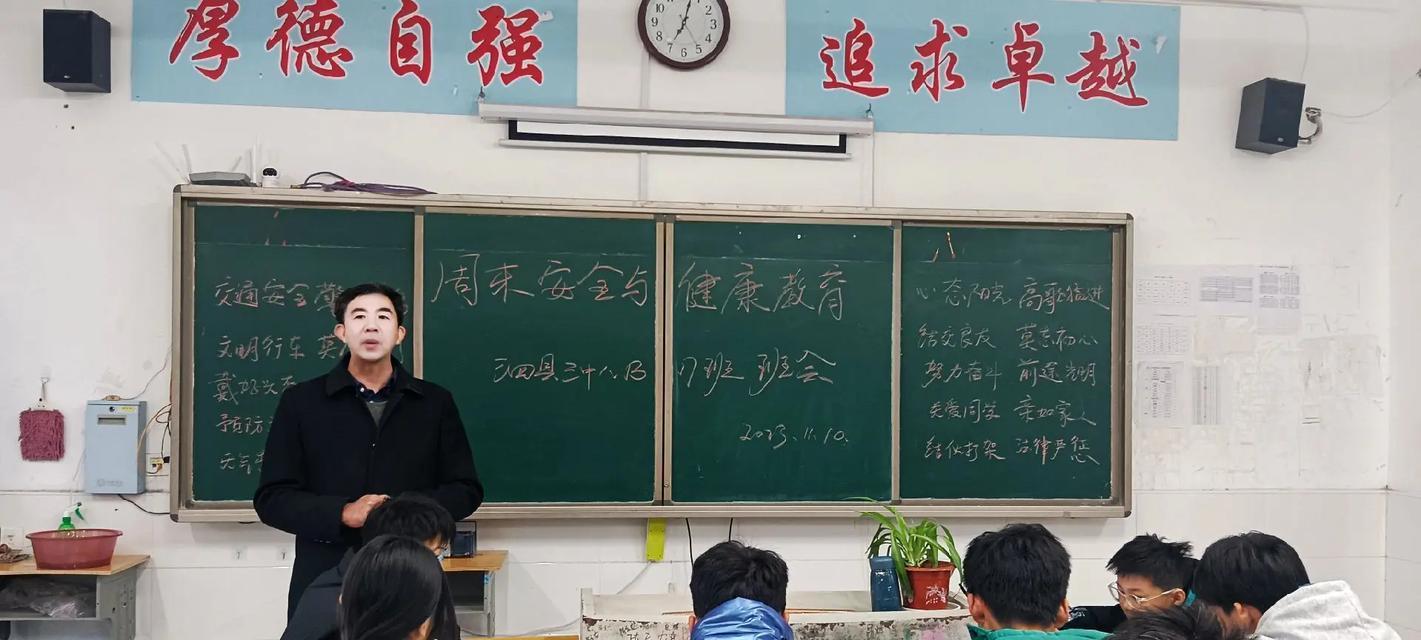 厚德自强
追求卓越
12
1
2
3
4
5
6
7
8
9
10
11
交通安全
文明行车
戴好
预防
天气
周末安全与健康教育
泗县三中八
班班会
2023.11.10.
心态阳光 高歌猛进
结交良友 莫忘初心
努力奋斗 前途光明
关爱同学 亲如家人
结伙打架 法律严惩